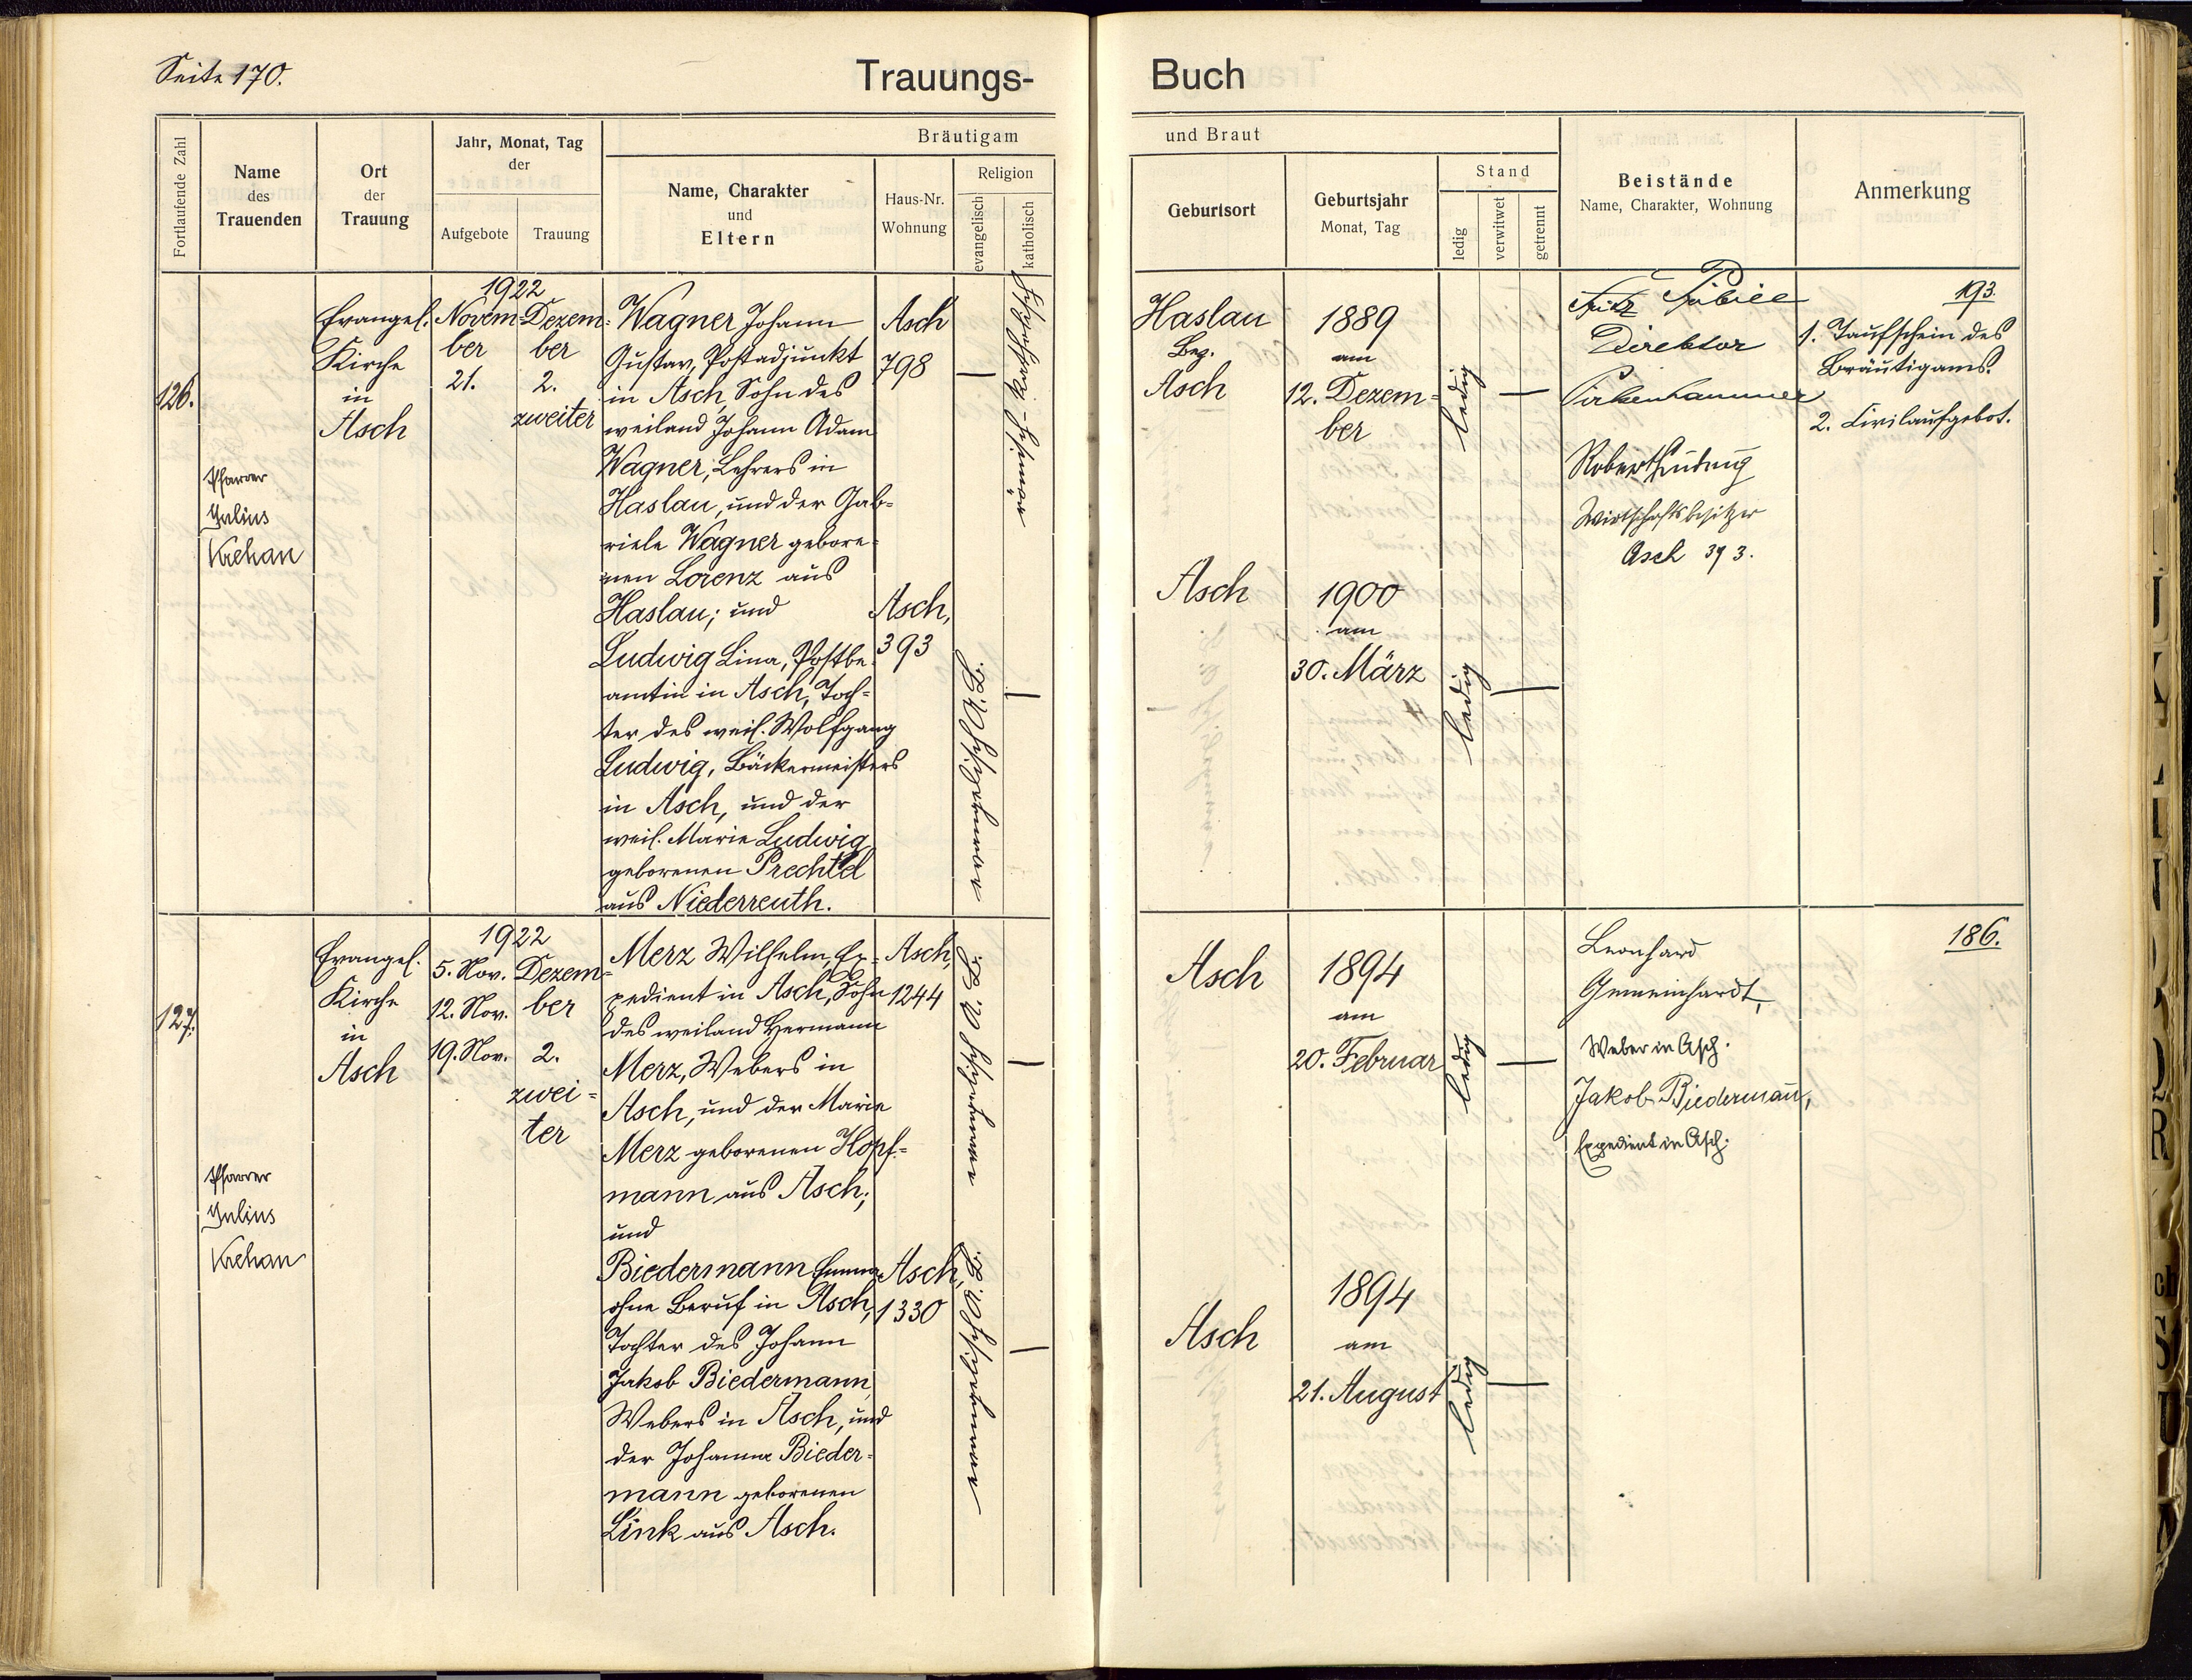 Seite 170.
Trauungs-
Buch
Fortlaufende Zahl
Name
des
Trauenden
Ort
der
Trauung
Jahr, Monat, Tag
der
Aufgebote
Trauung
Bräutigam
Name, Charakter
und
Eltern
Haus-Nr.
Wohnung
Religion
evangelisch
katholisch
und Braut
Geburtsort
Geburtsjahr
Monat, Tag
Stand
ledig
verwitwet
getrennt
Beistände
Name, Charakter, Wohnung
Anmerkung
126.
Pfarrer
Julius
Krehan
Evangel.
Kirche
in
Asch
1922
Novem-
ber
21.
Dezem-
ber
2.
zweiter
Wagner Johann
Gustav, Postadjunkt
in Asch, Sohn des
weiland Johann Adam
Wagner, Lehrers in
Haslau, und der Gab-
riele Wagner gebore-
nen Lorenz aus
Haslau; und
Ludwig Lina, Postbe-
amtin in Asch, Toch-
ter des weil. Wolfgang
Ludwig, Bäckermeisters
in Asch, und der
weil. Marie Ludwig
geborenen Prechtel
aus Niederreuth.
Asch
798
Asch,
393
evangelisch A. B.
Haslau
Bez.
Asch
1889
am
12. Dezem-
ber
ledig
Asch
1900
am
30. März
ledig
Direktor
Pirkenhammer
Robert Ludwig
Wirtschaftsbesitzer
Asch 393.
193.
1. Taufschein des
Bräutigams.
2. Civilaufgebot.
127.
Pfarrer
Julius
Krehan
Evangel.
Kirche
in
Asch
1922
5. Nov.
12. Nov.
19. Nov.
Dezem-
ber
2.
zwei-
ter
Merz Wilhelm, Ex-
pedient in Asch, Sohn
des weiland Hermann
Merz, Webers in
Asch, und der Marie
Merz geborenen Hopf-
mann aus Asch;
und
Biedermann Emma
ohne Beruf in Asch,
Tochter des Johann
Jakob Biedermann,
Webers in Asch, und
der Johanna Bieder-
mann geborenen
Link aus Asch.
Asch,
1244
Asch,
1330
evangelisch A. B.
evangelisch A. B.
Asch
1894
am
20. Februar
ledig
Asch
1894
am
21. August
ledig
Leonhard
Gemeinhardt,
Weber in Asch.
Jakob Biedermann,
Expedient in Asch.
186.